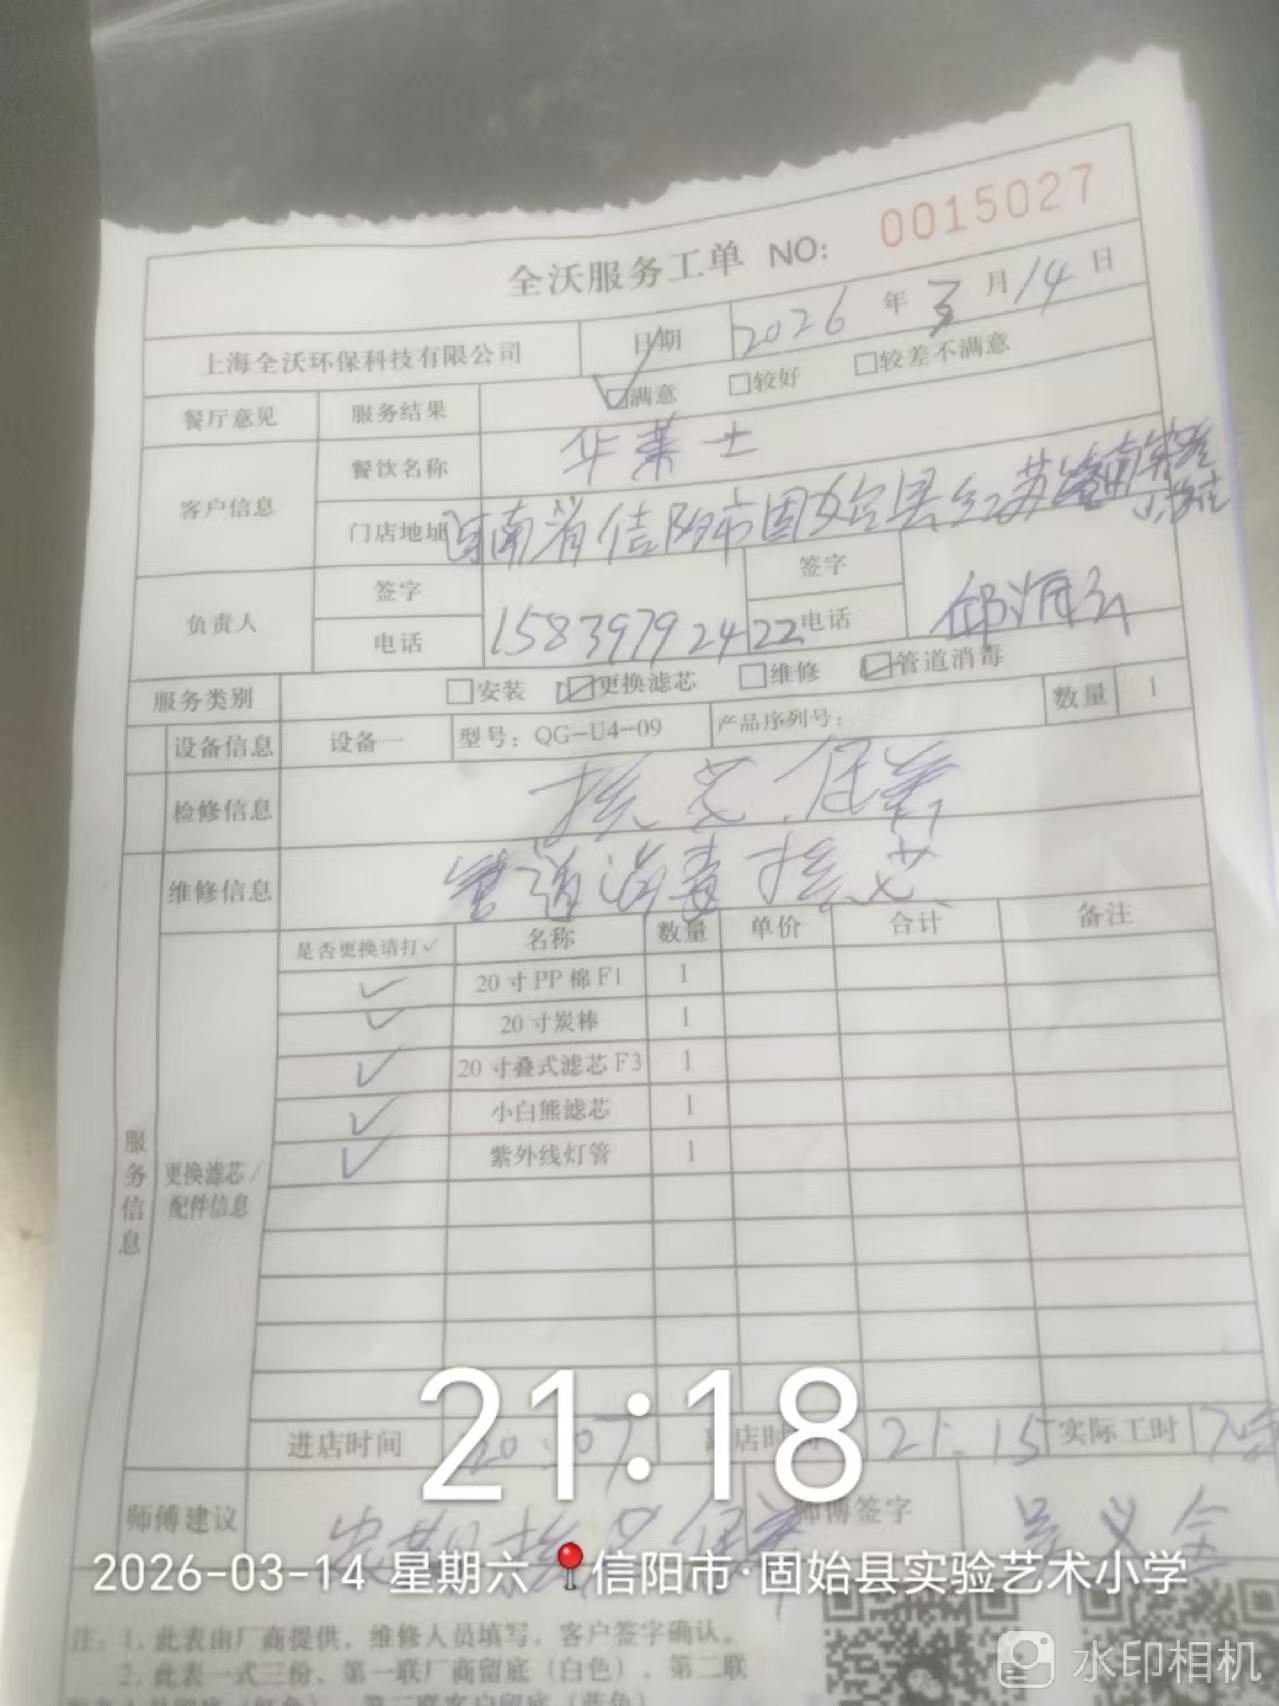 全沃服务工单 NO: 0015027
上海全沃环保科技有限公司 日期 2026年3月14日
餐厅意见 服务结果 ☑满意 □较好 □较差不满意
客户信息 餐饮名称 华莱士
门店地址 河南省信阳市固始县红苏路南实验小学店
负责人 签字 签字
电话 15839792422 电话 邱海
服务类别 □安装 ☑更换滤芯 □维修 ☑管道消毒
设备信息 设备一 型号：QG-U4-09 产品序列号： 数量 1
检修信息 换芯.保养
维修信息 管道消毒换芯
是否更换请打✓ 名称 数量 单价 合计 备注
✓ 20寸PP棉F1 1
✓ 20寸炭棒 1
✓ 20寸叠式滤芯F3 1
✓ 小白熊滤芯 1
✓ 紫外线灯管 1
服务信息
更换滤芯/
配件信息
21:18
进店时间 20:07 离店时间 21:15 实际工时
师傅建议 定期换芯保养 师傅签字 吴义全
2026-03-14 星期六 信阳市·固始县实验艺术小学
注：1. 此表由厂商提供，维修人员填写，客户签字确认。
2. 此表一式三份、第一联厂商留底（白色）、第二联
水印相机